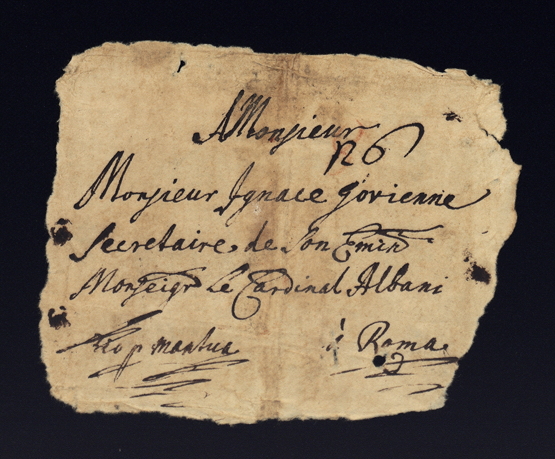 A Monsieur
n6
Monsieur Ignace Gorienne
Secretaire de Son Emin
Monseigr Le Cardinal Albani
p mantua
à Roma